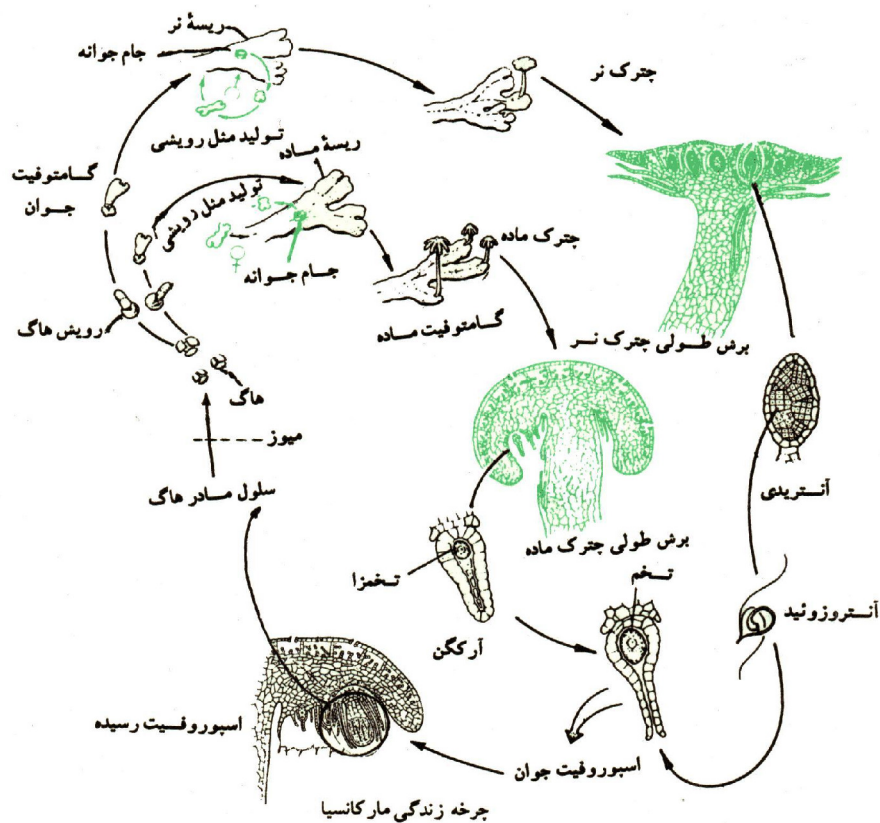 ریسهٔ نر
جام جوانه
چترک نر
تولید مثل رویشی
ریسهٔ ماده
گامتوفیت
جوان
تولید مثل رویشی
چترک ماده
جام جوانه
گامتوفیت ماده
رویش هاگ
برش طولی چترک نر
هاگ
میوز
سلول مادر هاگ
آنتریدی
برش طولی چترک ماده
تخمزا
تخم
آنتروزوئید
آرکگن
اسپوروفیت رسیده
اسپوروفیت جوان
چرخه زندگی مارکانسیا